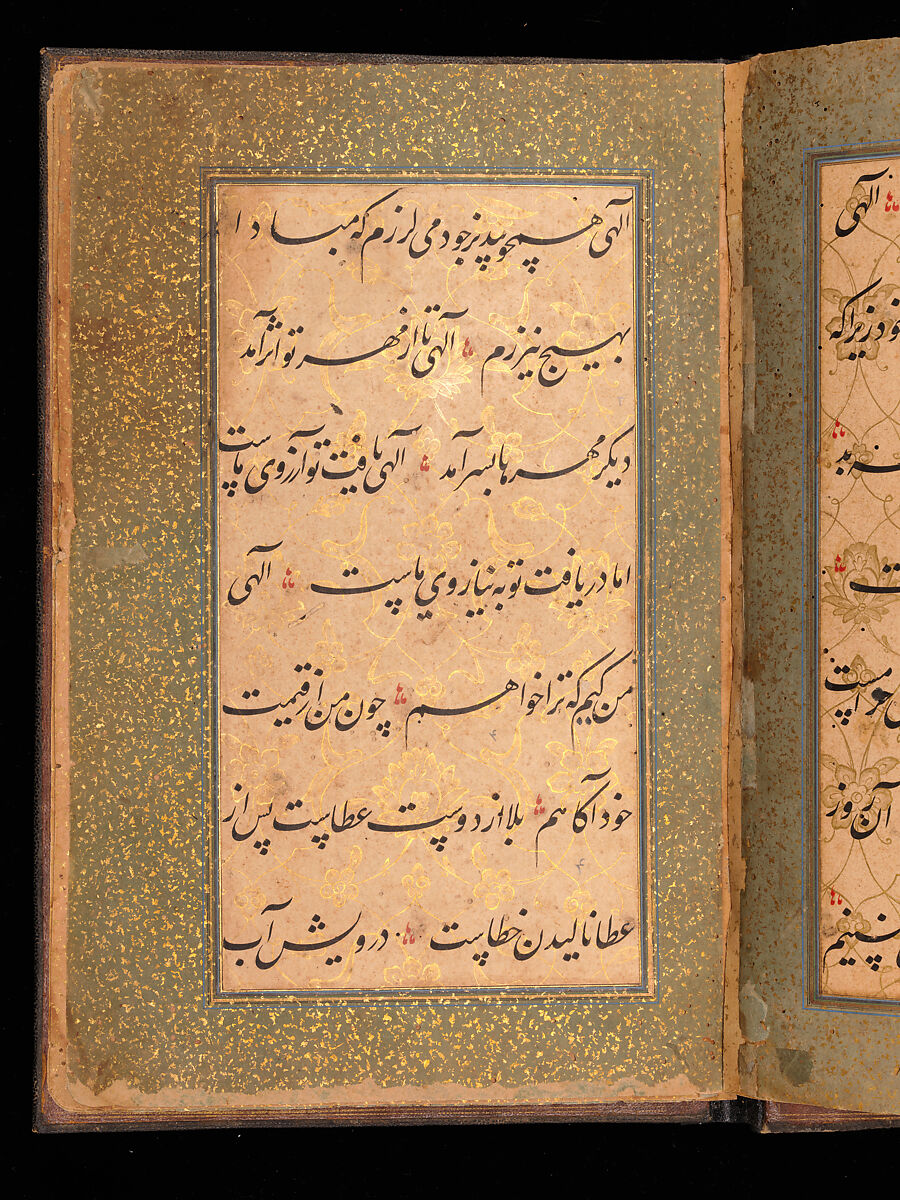 الهی
خود زیرا که
آن روز
الهی همچو بید بر خود می لرزم که مبادا
بهیچ نیرزم الهی تا از مهر تو اثر آمد
دیگر مهرها بسر آمد الهی یافت تو آرزوی ماست
اما دریافت تو نه ببازوی ماست الهی
من کیم که ترا خواهم چون من از قیمت
خود آگاهم بلا از دوست عطاست پس از
عطا نالیدن خطاست درویش آب